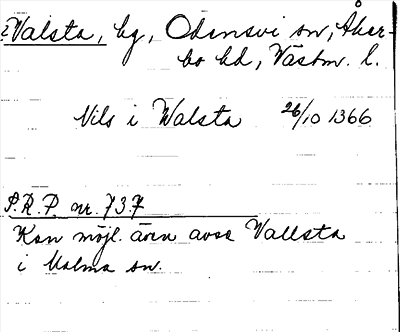 ?Valsta, by, Odensvi sn, Åker-
bo hd, Västm. l.
Nils i Walsta 26/10 1366
S.R.P. nr. 737
Kan möjl. även avse Vallsta
i Malma sn.